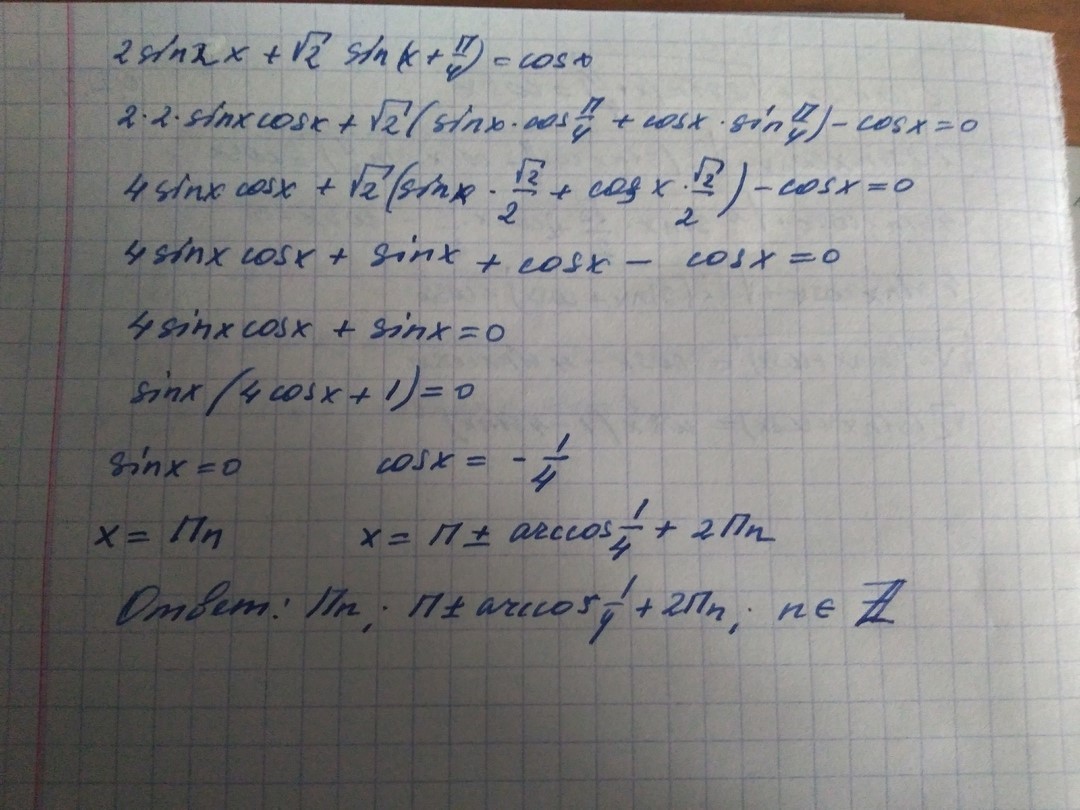 2sin2x + √2 sin(x + π/4) = cosx
2·2·sinxcosx + √2(sinx·cos π/4 + cosx·sin π/4) - cosx = 0
4sinx cosx + √2(sinx · √2/2 + cosx · √2/2) - cosx = 0
4sinx cosx + sinx + cosx - cosx = 0
4sinxcosx + sinx = 0
sinx(4cosx + 1) = 0
sinx = 0 cosx = - 1/4
x = Πn x = Π ± arccos 1/4 + 2Πn
Ответ: Πn; Π ± arccos 1/4 + 2Πn; n ∈ ℤ